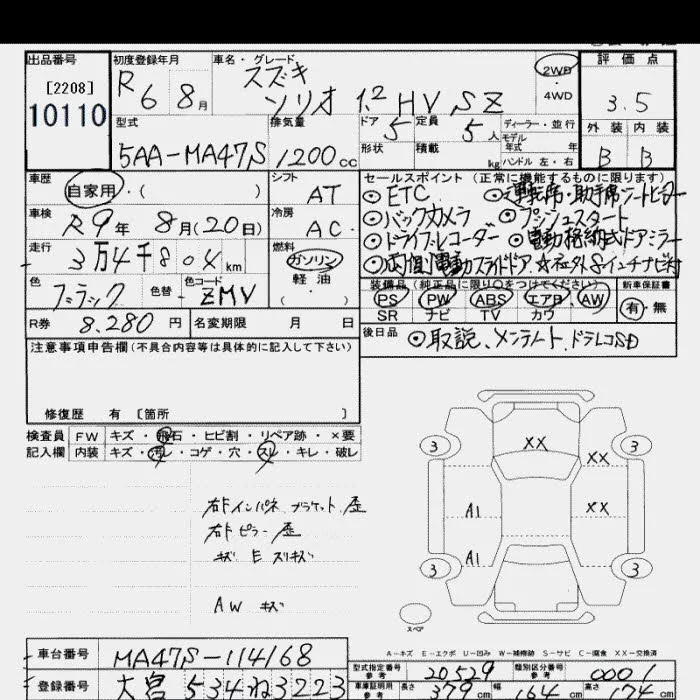 出品番号 初度登録年月 車名・グレード 評価点
[2208] R 6 8月 スズキ 2WD
10110 ソリオ 1.2 HV SZ ・4WD 3.5
型式 排気量 ドア 定員 ディーラー・並行 外装 内装
5AA-MA47S 1200cc 5 5人 モデル年式 年 B B
形状 積載 kg ハンドル 左・右
車歴 シフト セールスポイント (正常に機能するものに限ります)
自家用・( ) AT ◎ETC ◎運転席・助手席シートヒーター
車検 冷房 ◎バックカメラ ◎プッシュスタート
R9年 8月(20日) AC ◎ドライブレコーダー ◎電動格納式ドアミラー
走行 燃料 ◎両側電動スライドドア ☆社外8インチナビ付
3万4千804km ガソリン
軽油
( )
色 色替 色コード 装備品 (純正品に限り○をつけてください) 新車保証書
ブラック ZMV PS PW ABS エアB AW 有・無
SR ナビ TV カワ
R券 8,280円 名変期限 月 日 後日品 ◎取説、メンテノート、ドラレコSD
注意事項申告欄(不具合内容等は具体的に記入して下さい)
修復歴 有 [箇所 ]
検査員 FW キズ・飛石・ヒビ割・リペア跡・×要
記入欄 内装 キズ・汚レ・コゲ・穴・スレ・キレ・破レ
右Fインパネ ブラケット 歪
右Fピラー 歪
キズ E スリキズ
AW キズ
XX XX
XX
A1
A1
3 3
3 3
スペア
A-キズ E-エクボ U-凹み W-補修跡 S-サビ C-腐食 XX-交換済
車台番号 MA47S-114168
型式指定番号 参考 20529 類別区分番号 参考 0001
登録番号 大宮 534 ね 3223
車庫証明用 参考 長さ 379cm 幅 164cm 高さ 174cm